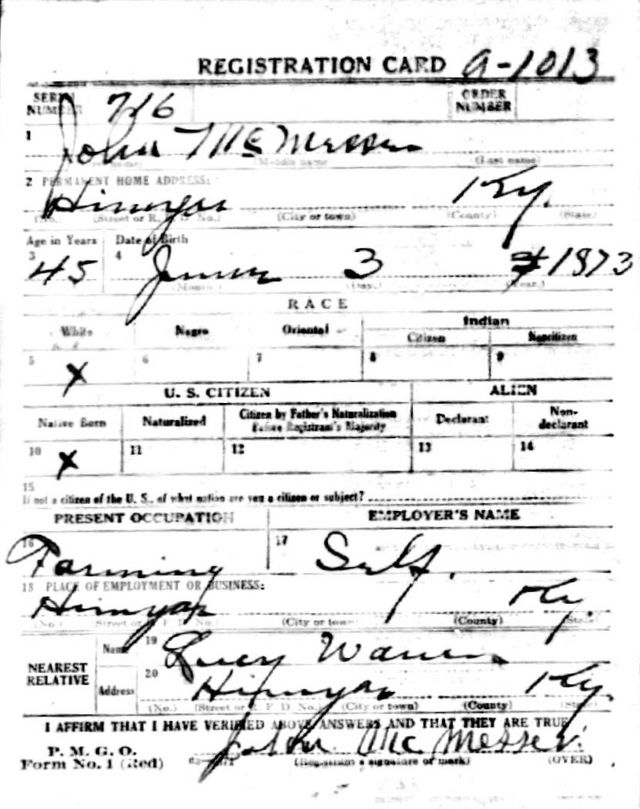 REGISTRATION CARD a-1013
SERIAL NUMBER 716 ORDER NUMBER
1 John Mc Messer
(Middle name) (Last name)
2 PERMANENT HOME ADDRESS:
Himyar Ky.
(No.) (Street or R. F. D. No.) (City or town) (County) (State)
Age in Years Date of Birth
3 45 4 3 1873
(Month.) (Day.) (Year.)
RACE
White Negro Oriental Indian
Citizen Noncitizen
5 X 6 7 8 9
U. S. CITIZEN ALIEN
Native Born Naturalized Citizen by Father's Naturalization Before Registrant's Majority Declarant Non-declarant
10 X 11 12 13 14
15
If not a citizen of the U. S., of what nation are you a citizen or subject?
PRESENT OCCUPATION EMPLOYER'S NAME
16 Farming 17 Self.
18 PLACE OF EMPLOYMENT OR BUSINESS:
Himyar Ky.
(No.) (Street or R. F. D. No.) (City or town) (County) (State)
NEAREST RELATIVE
Name 19 Lucy Warren
Address 20 Himyar Ky.
(No.) (Street or R. F. D. No.) (City or town) (County) (State)
I AFFIRM THAT I HAVE VERIFIED ABOVE ANSWERS AND THAT THEY ARE TRUE
P. M. G. O.
Form No. 1 (Red) John Mc Messer
(Registrant's signature or mark) (OVER)